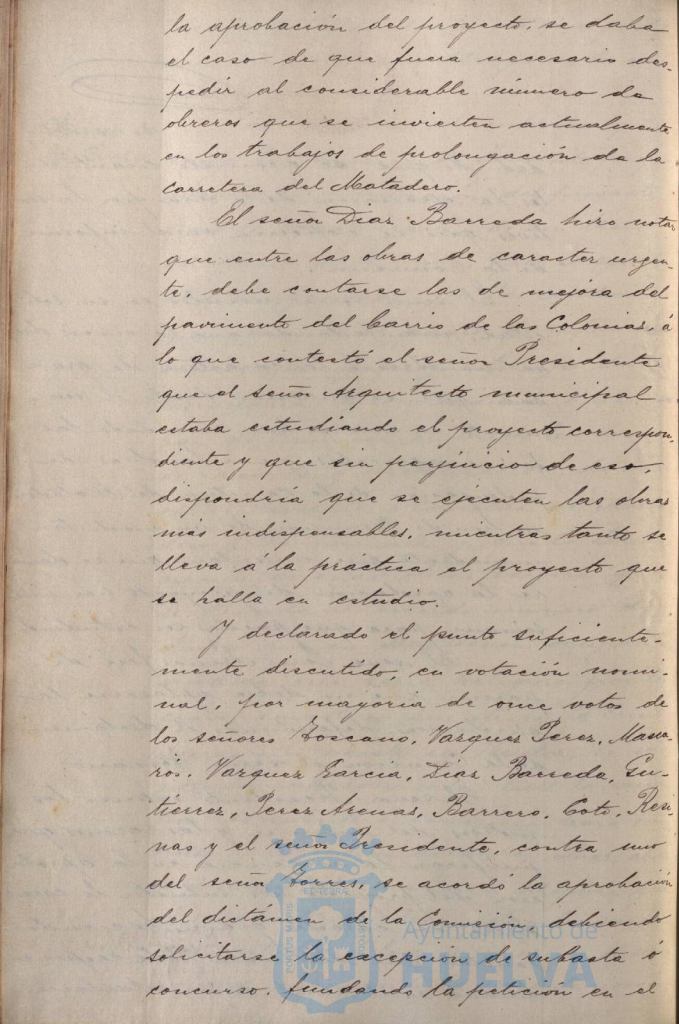 la aprobación del proyecto, se daba
el caso de que fuera necesario des-
pedir al considerable número de
obreros que se invierten actualmente
en los trabajos de prolongación de la
carretera del Matadero.
El señor Diaz Barreda hizo notar
que entre las obras de caracter urgen-
te, debe contarse las de mejora del
pavimento del barrio de las Colonias, á
lo que contestó el señor Presidente
que el señor Arquitecto municipal
estaba estudiando el proyecto correspon-
diente y que sin perjuicio de eso,
dispondría que se ejecuten las obras
más indispensables, mientras tanto se
lleva á la práctica el proyecto que
se halla en estudio.
Y declarado el punto suficiente-
mente discutido, en votación nomi-
nal, por mayoria de once votos de
los señores Toscano, Vazquez Perez,
Vazquez Garcia, Diaz Barreda, Gu-
tierrez, Perez Arenas, Barrero, Coto,
y el señor Presidente, contra uno
del señor Torres, se acordó la aprobación
del dictámen de la Comisión, debiendo
solicitarse la excepción de subasta ó
concurso, fundando la petición en el
Ayuntamiento de
HUELVA